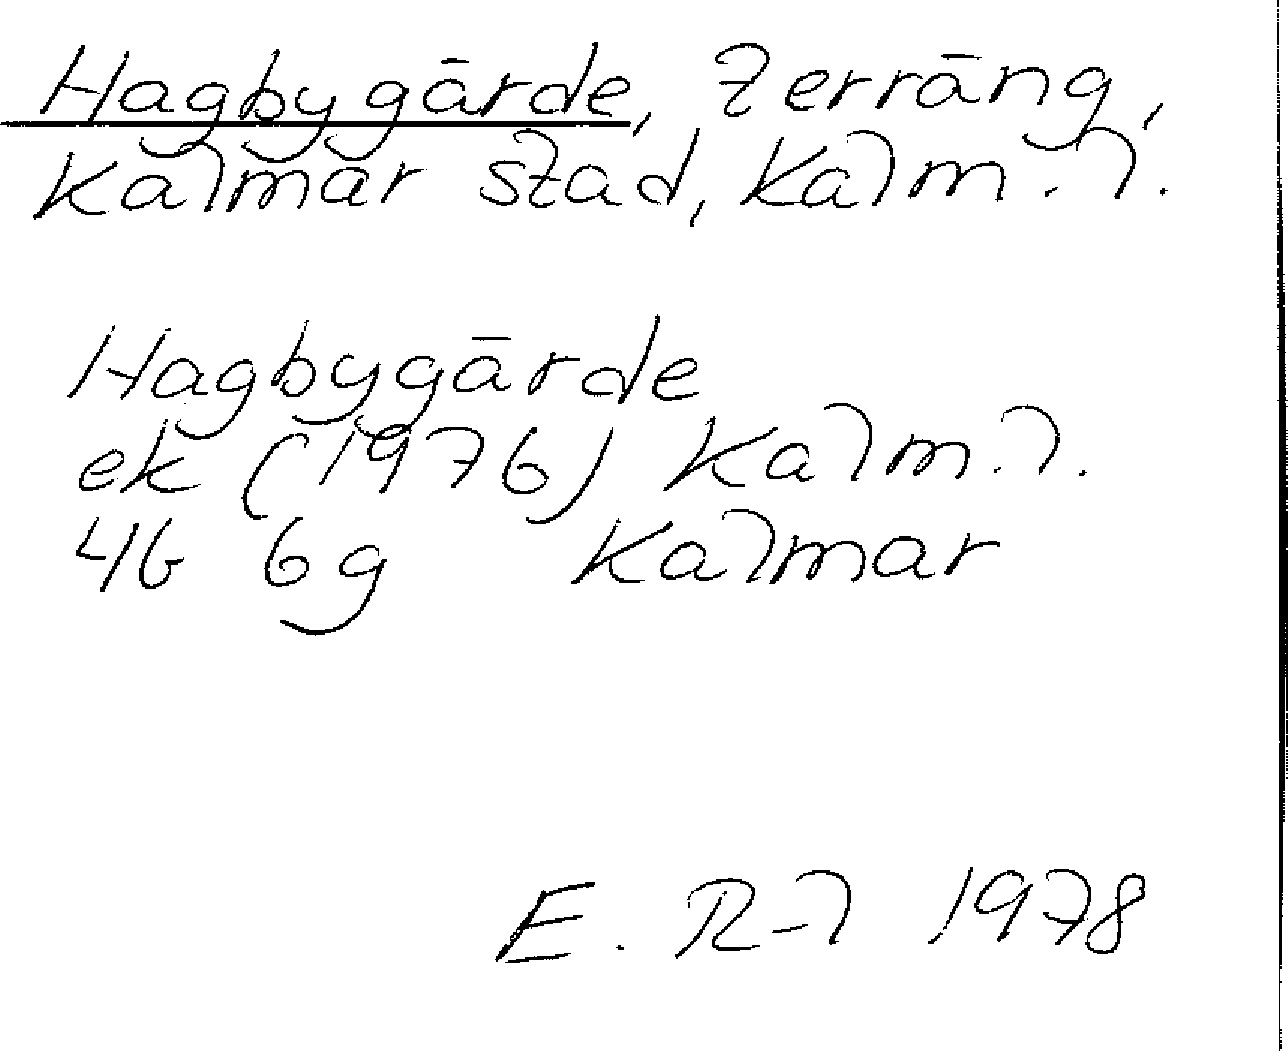 Hagbygärde, Terräng,
Kalmar stad, Kalm. l.
Hagbygärde
ek (1976) Kalm. l.
4G 6g Kalmar
E. R-l 1978